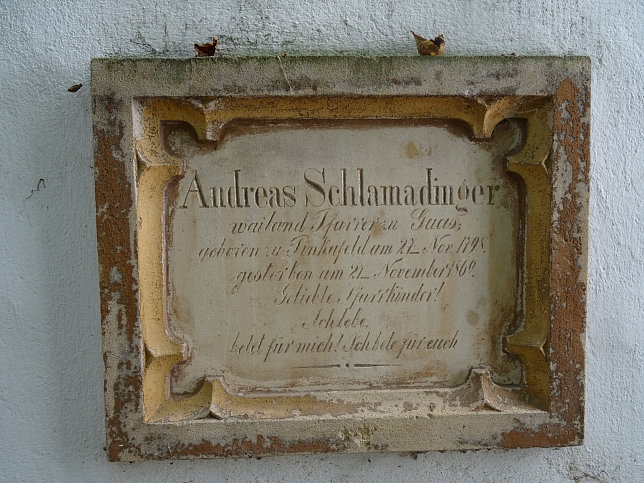 Andreas Schlamadinger
wailand Pfarrer zu Gaas;
geboren zu Pinkafeld am 27 Nov. 1798.
gestorben am 21 November 1860.
Gelibte Pfarrkinder!
Ich lebe,
betet für mich! Ich bete für euch